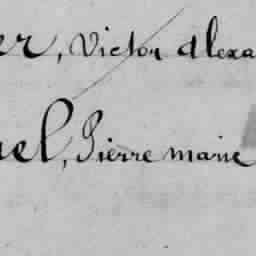 er, Victor Alexa
uel, Pierre marie